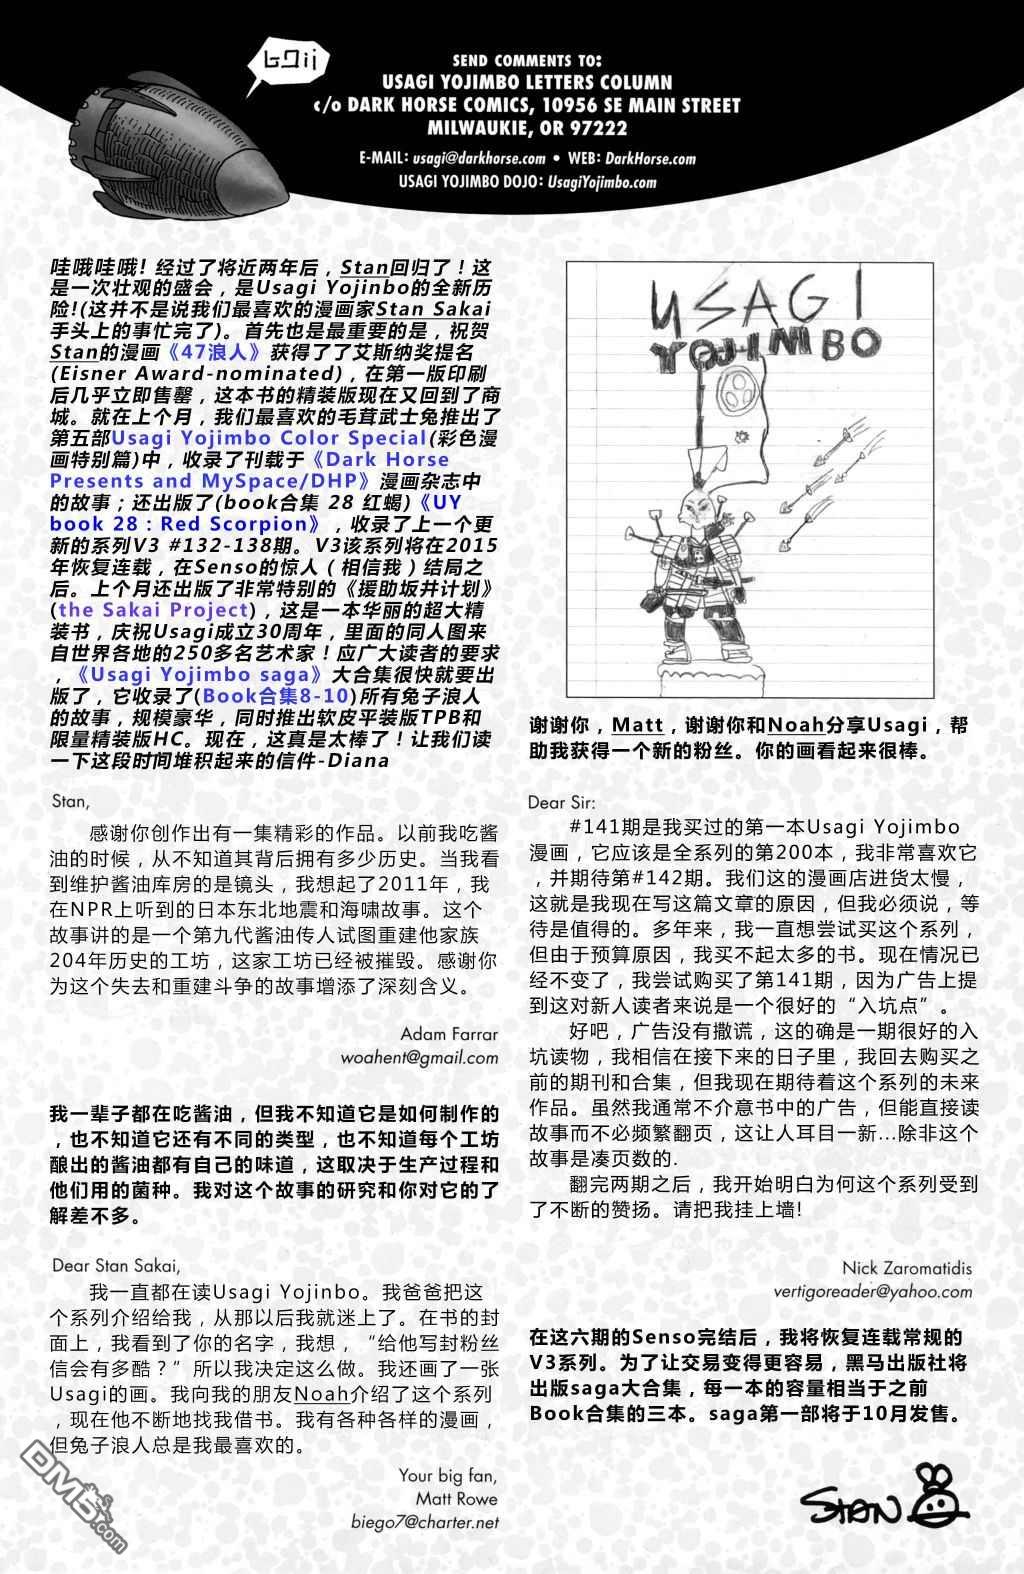 SEND COMMENTS TO:
USAGI YOJIMBO LETTERS COLUMN
c/o DARK HORSE COMICS, 10956 SE MAIN STREET
MILWAUKIE, OR 97222
E-MAIL: usagi@darkhorse.com • WEB: DarkHorse.com
USAGI YOJIMBO DOJO: UsagiYojimbo.com
哇哦哇哦! 经过了将近两年后，Stan回归了！这
是一次壮观的盛会，是Usagi Yojinbo的全新历
险!(这并不是说我们最喜欢的漫画家Stan Sakai
手头上的事忙完了)。首先也是最重要的是，祝贺
Stan的漫画《47浪人》获得了了艾斯纳奖提名
(Eisner Award-nominated)，在第一版印刷
后几乎立即售罄，这本书的精装版现在又回到了商
城。就在上个月，我们最喜欢的毛茸武士兔推出了
第五部Usagi Yojimbo Color Special(彩色漫
画特别篇)中，收录了刊载于《Dark Horse
Presents and MySpace/DHP》漫画杂志中
的故事；还出版了(book合集 28 红蝎)《UY
book 28：Red Scorpion》，收录了上一个更
新的系列V3 #132-138期。V3该系列将在2015
年恢复连载，在Senso的惊人（相信我）结局之
后。上个月还出版了非常特别的《援助坂井计划》
(the Sakai Project)，这是一本华丽的超大精
装书，庆祝Usagi成立30周年，里面的同人图来
自世界各地的250多名艺术家！应广大读者的要求
，《Usagi Yojimbo saga》大合集很快就要出
版了，它收录了(Book合集8-10)所有兔子浪人
的故事，规模豪华，同时推出软皮平装版TPB和
限量精装版HC。现在，这真是太棒了！让我们读
一下这段时间堆积起来的信件-Diana
Stan,
感谢你创作出有一集精彩的作品。以前我吃酱
油的时候，从不知道其背后拥有多少历史。当我看
到维护酱油库房的是镜头，我想起了2011年，我
在NPR上听到的日本东北地震和海啸故事。这个
故事讲的是一个第九代酱油传人试图重建他家族
204年历史的工坊，这家工坊已经被摧毁。感谢你
为这个失去和重建斗争的故事增添了深刻含义。
Adam Farrar
woahent@gmail.com
我一辈子都在吃酱油，但我不知道它是如何制作的
，也不知道它还有不同的类型，也不知道每个工坊
酿出的酱油都有自己的味道，这取决于生产过程和
他们用的菌种。我对这个故事的研究和你对它的了
解差不多。
Dear Stan Sakai,
我一直都在读Usagi Yojinbo。我爸爸把这
个系列介绍给我，从那以后我就迷上了。在书的封
面上，我看到了你的名字，我想，“给他写封粉丝
信会有多酷？”所以我决定这么做。我还画了一张
Usagi的画。我向我的朋友Noah介绍了这个系列
，现在他不断地找我借书。我有各种各样的漫画，
但兔子浪人总是我最喜欢的。
Your big fan,
Matt Rowe
biego7@charter.net
USAGI
YOJIMBO
谢谢你，Matt，谢谢你和Noah分享Usagi，帮
助我获得一个新的粉丝。你的画看起来很棒。
Dear Sir:
#141期是我买过的第一本Usagi Yojimbo
漫画，它应该是全系列的第200本，我非常喜欢它
，并期待第#142期。我们这的漫画店进货太慢，
这就是我现在写这篇文章的原因，但我必须说，等
待是值得的。多年来，我一直想尝试买这个系列，
但由于预算原因，我买不起太多的书。现在情况已
经不变了，我尝试购买了第141期，因为广告上提
到这对新人读者来说是一个很好的“入坑点”。
好吧，广告没有撒谎，这的确是一期很好的入
坑读物，我相信在接下来的日子里，我回去购买之
前的期刊和合集，但我现在期待着这个系列的未来
作品。虽然我通常不介意书中的广告，但能直接读
故事而不必频繁翻页，这让人耳目一新...除非这个
故事是凑页数的.
翻完两期之后，我开始明白为何这个系列受到
了不断的赞扬。请把我挂上墙!
Nick Zaromatidis
vertigoreader@yahoo.com
在这六期的Senso完结后，我将恢复连载常规的
V3系列。为了让交易变得更容易，黑马出版社将
出版saga大合集，每一本的容量相当于之前
Book合集的三本。saga第一部将于10月发售。
STAN
DM5.com